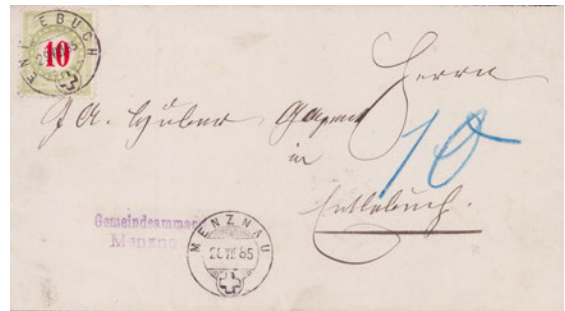 ENTLEBUCH
10
Herrn
J. A. Huber, Agent
in
10
Entlebuch.
Gemeindeammann
Menznau
MENZNAU